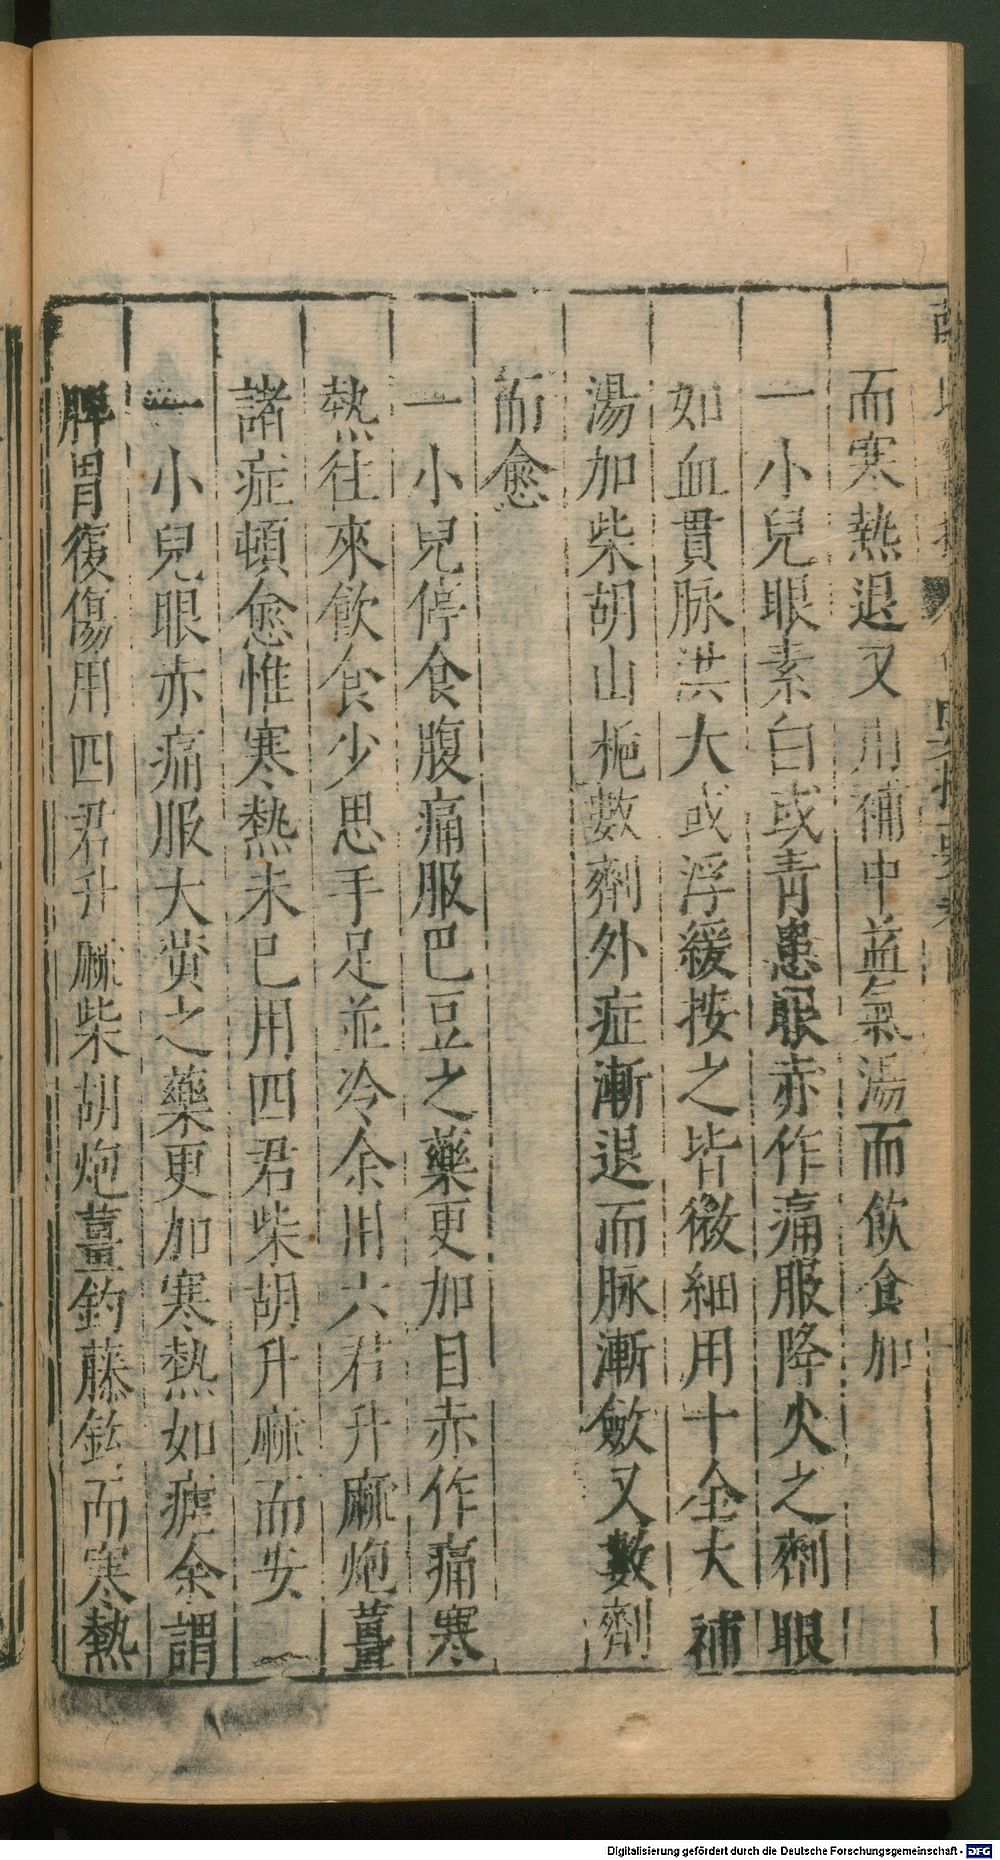 而寒熱退又用補中益氣湯而飲食加
一小兒眼素白或青患眼赤作痛服降火之劑眼
如血貫脉洪大或浮緩按之皆微細用十全大補
湯加柴胡山梔數劑外症漸退而脉漸斂又數劑
而愈
一小兒停食腹痛服巴豆之藥更加目赤作痛寒
熱往來飲食少思手足並冷余用六君升麻炮薑
諸症頓愈惟寒熱未已用四君柴胡升麻而安
一小兒眼赤痛服大黄之藥更加寒熱如瘧余謂
脾胃復傷用四君升麻柴胡炮薑釣藤鈎而寒熱
Digitalisierung gefördert durch die Deutsche Forschungsgemeinschaft - DFG